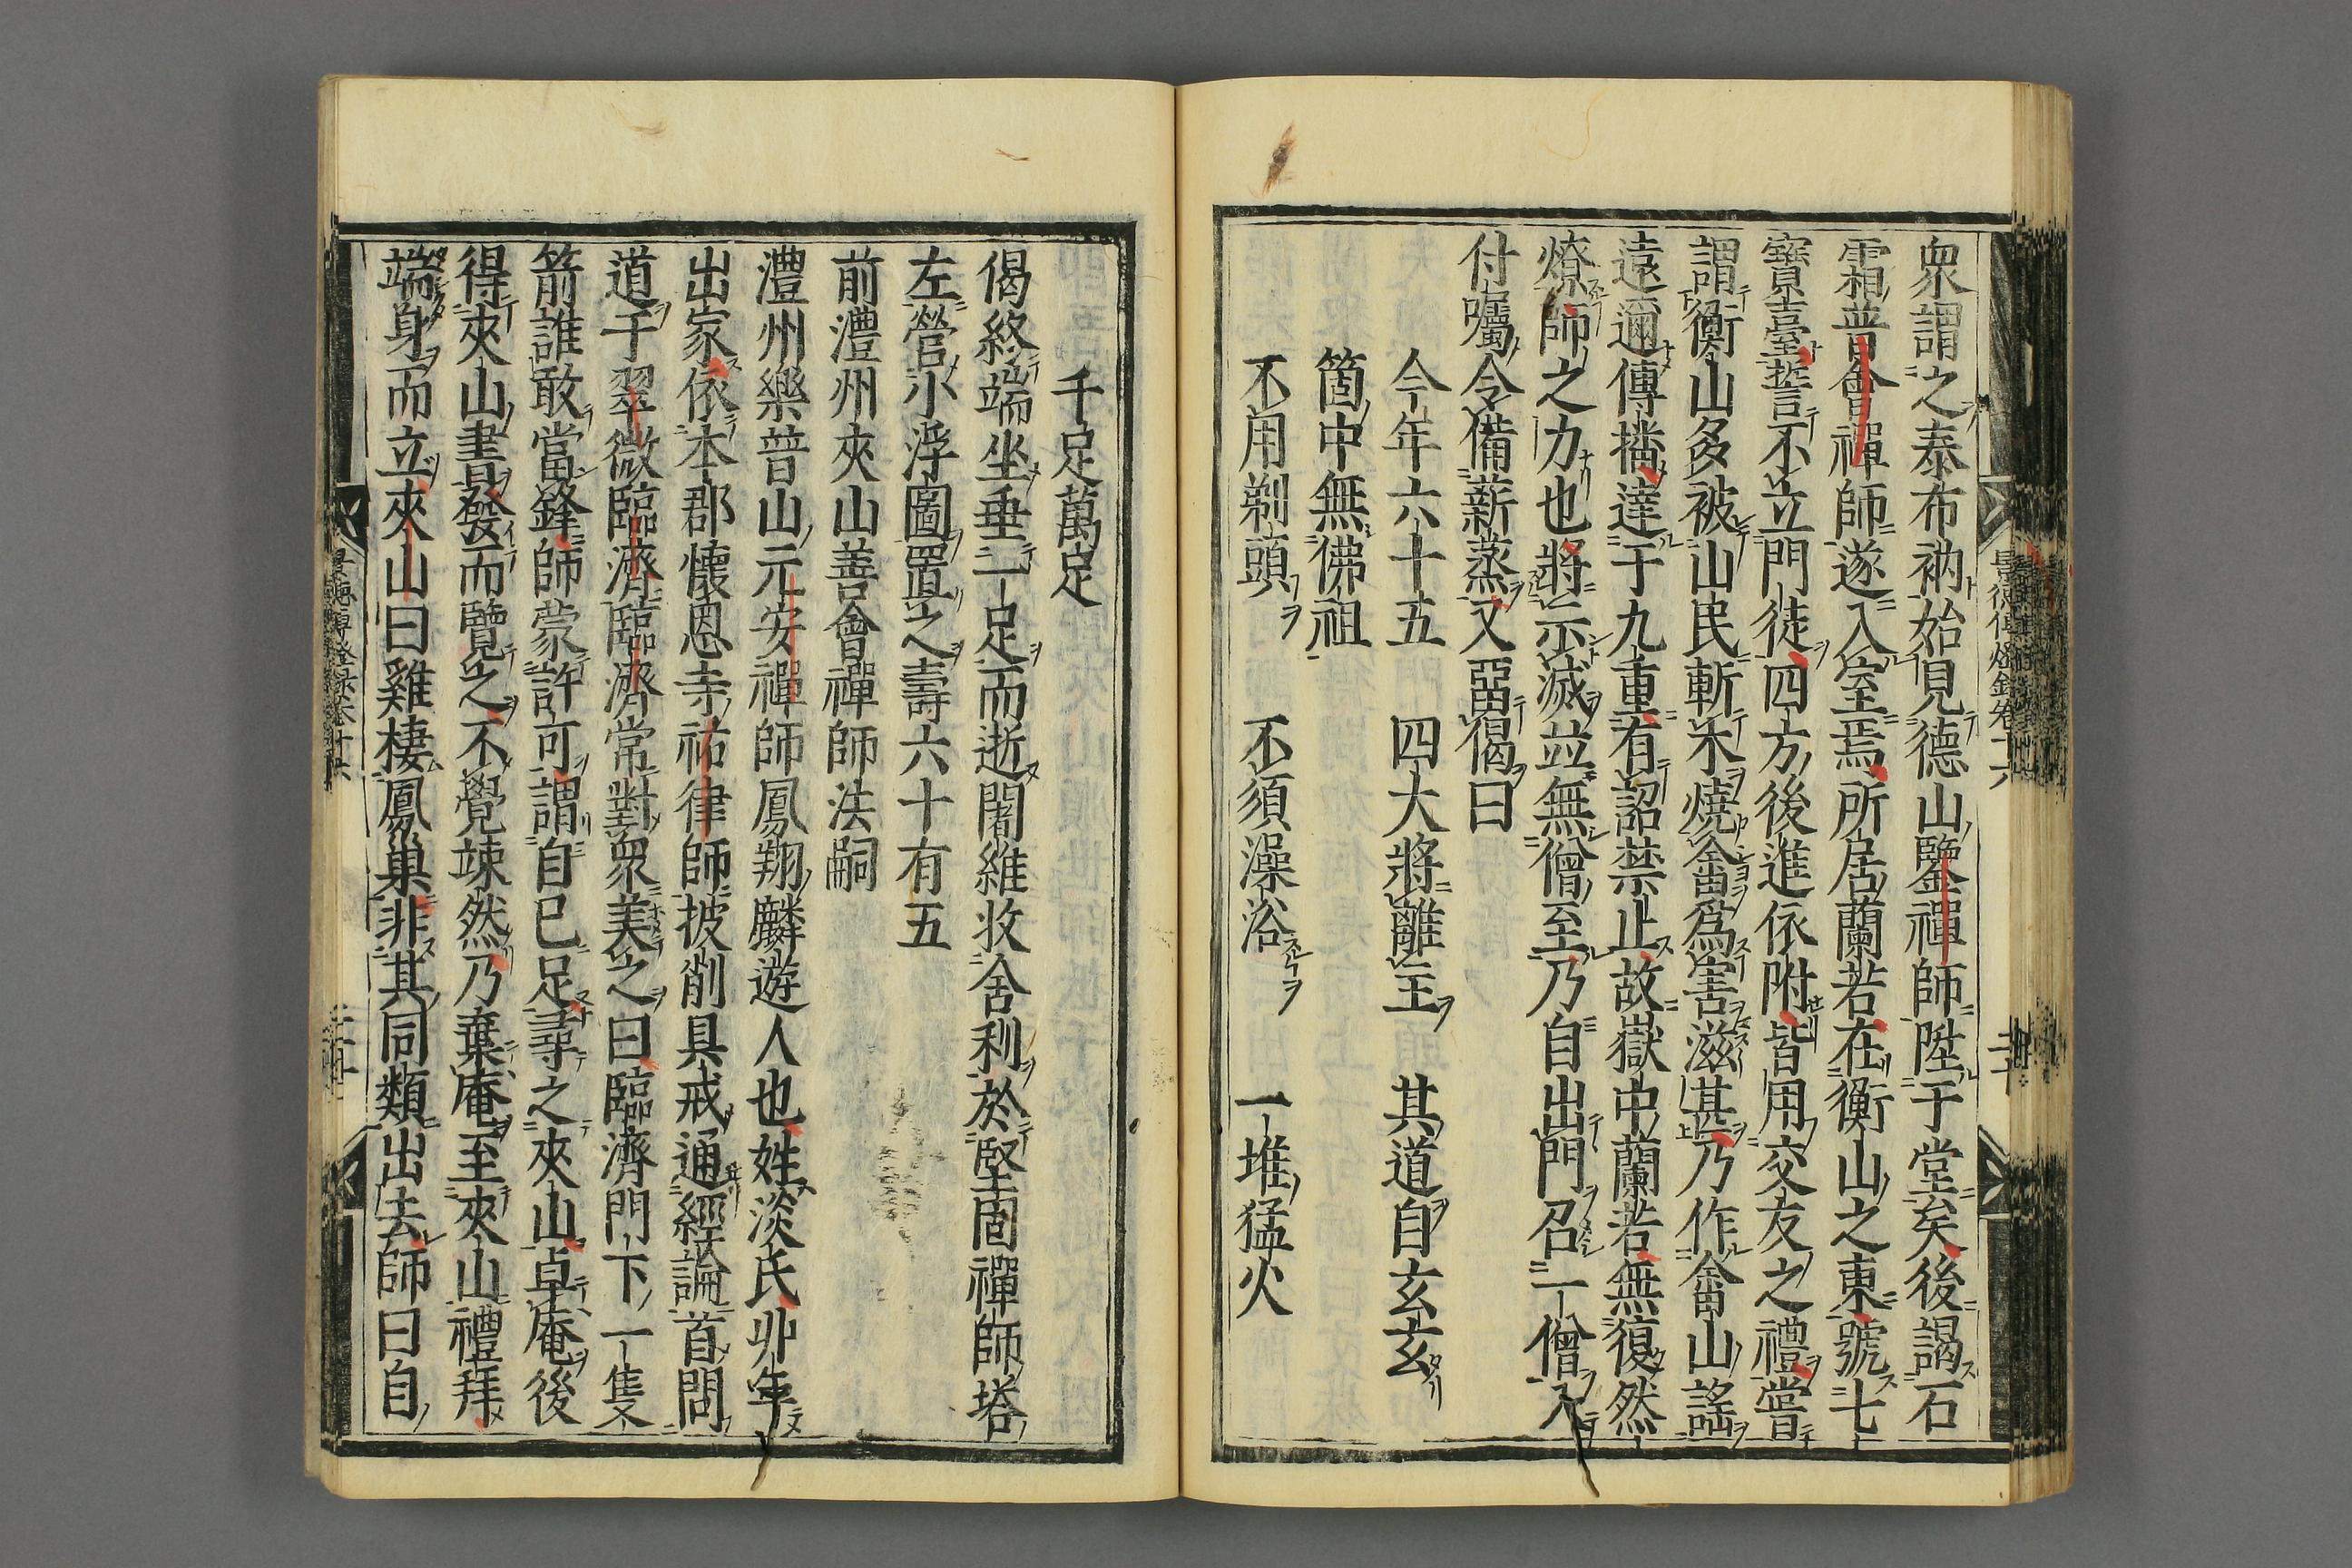 衆謂之泰布衲始見德山鑒禪師陞于堂矣後謁石
霜普會禪師遂入室焉所居蘭若在衡山之東號七
寶臺誓不立門徒四方後進依附皆用交友之禮嘗
謂衡山多被山民斬木燒畬爲害滋甚乃作畬山謠
遠邇傳播達于九重有詔禁止故嶽中蘭若無復然
燎師之力也將示滅並無僧至乃自出門召一僧入
付囑令備薪蒸又畱偈曰
今年六十五 四大將離主 其道自玄玄
箇中無佛祖
不用剃頭 不須澡浴 一堆猛火
千足萬足
偈終端坐垂一足而逝闍維收舍利於堅固禪師塔
左營小浮圖置之壽六十有五
前澧州夾山善會禪師法嗣
澧州樂普山元安禪師鳳翔麟遊人也姓淡氏丱年
出家依本郡懷恩寺祐律師披削具戒通經論首問
道于翠微臨濟臨濟常對衆美之曰臨濟門下一隻
箭誰敢當鋒師蒙許可謂自已足尋之夾山卓庵後
得夾山書發而覽之不覺竦然乃棄庵至夾山禮拜
端身而立夾山曰雞棲鳳巢非其同類出去師曰自